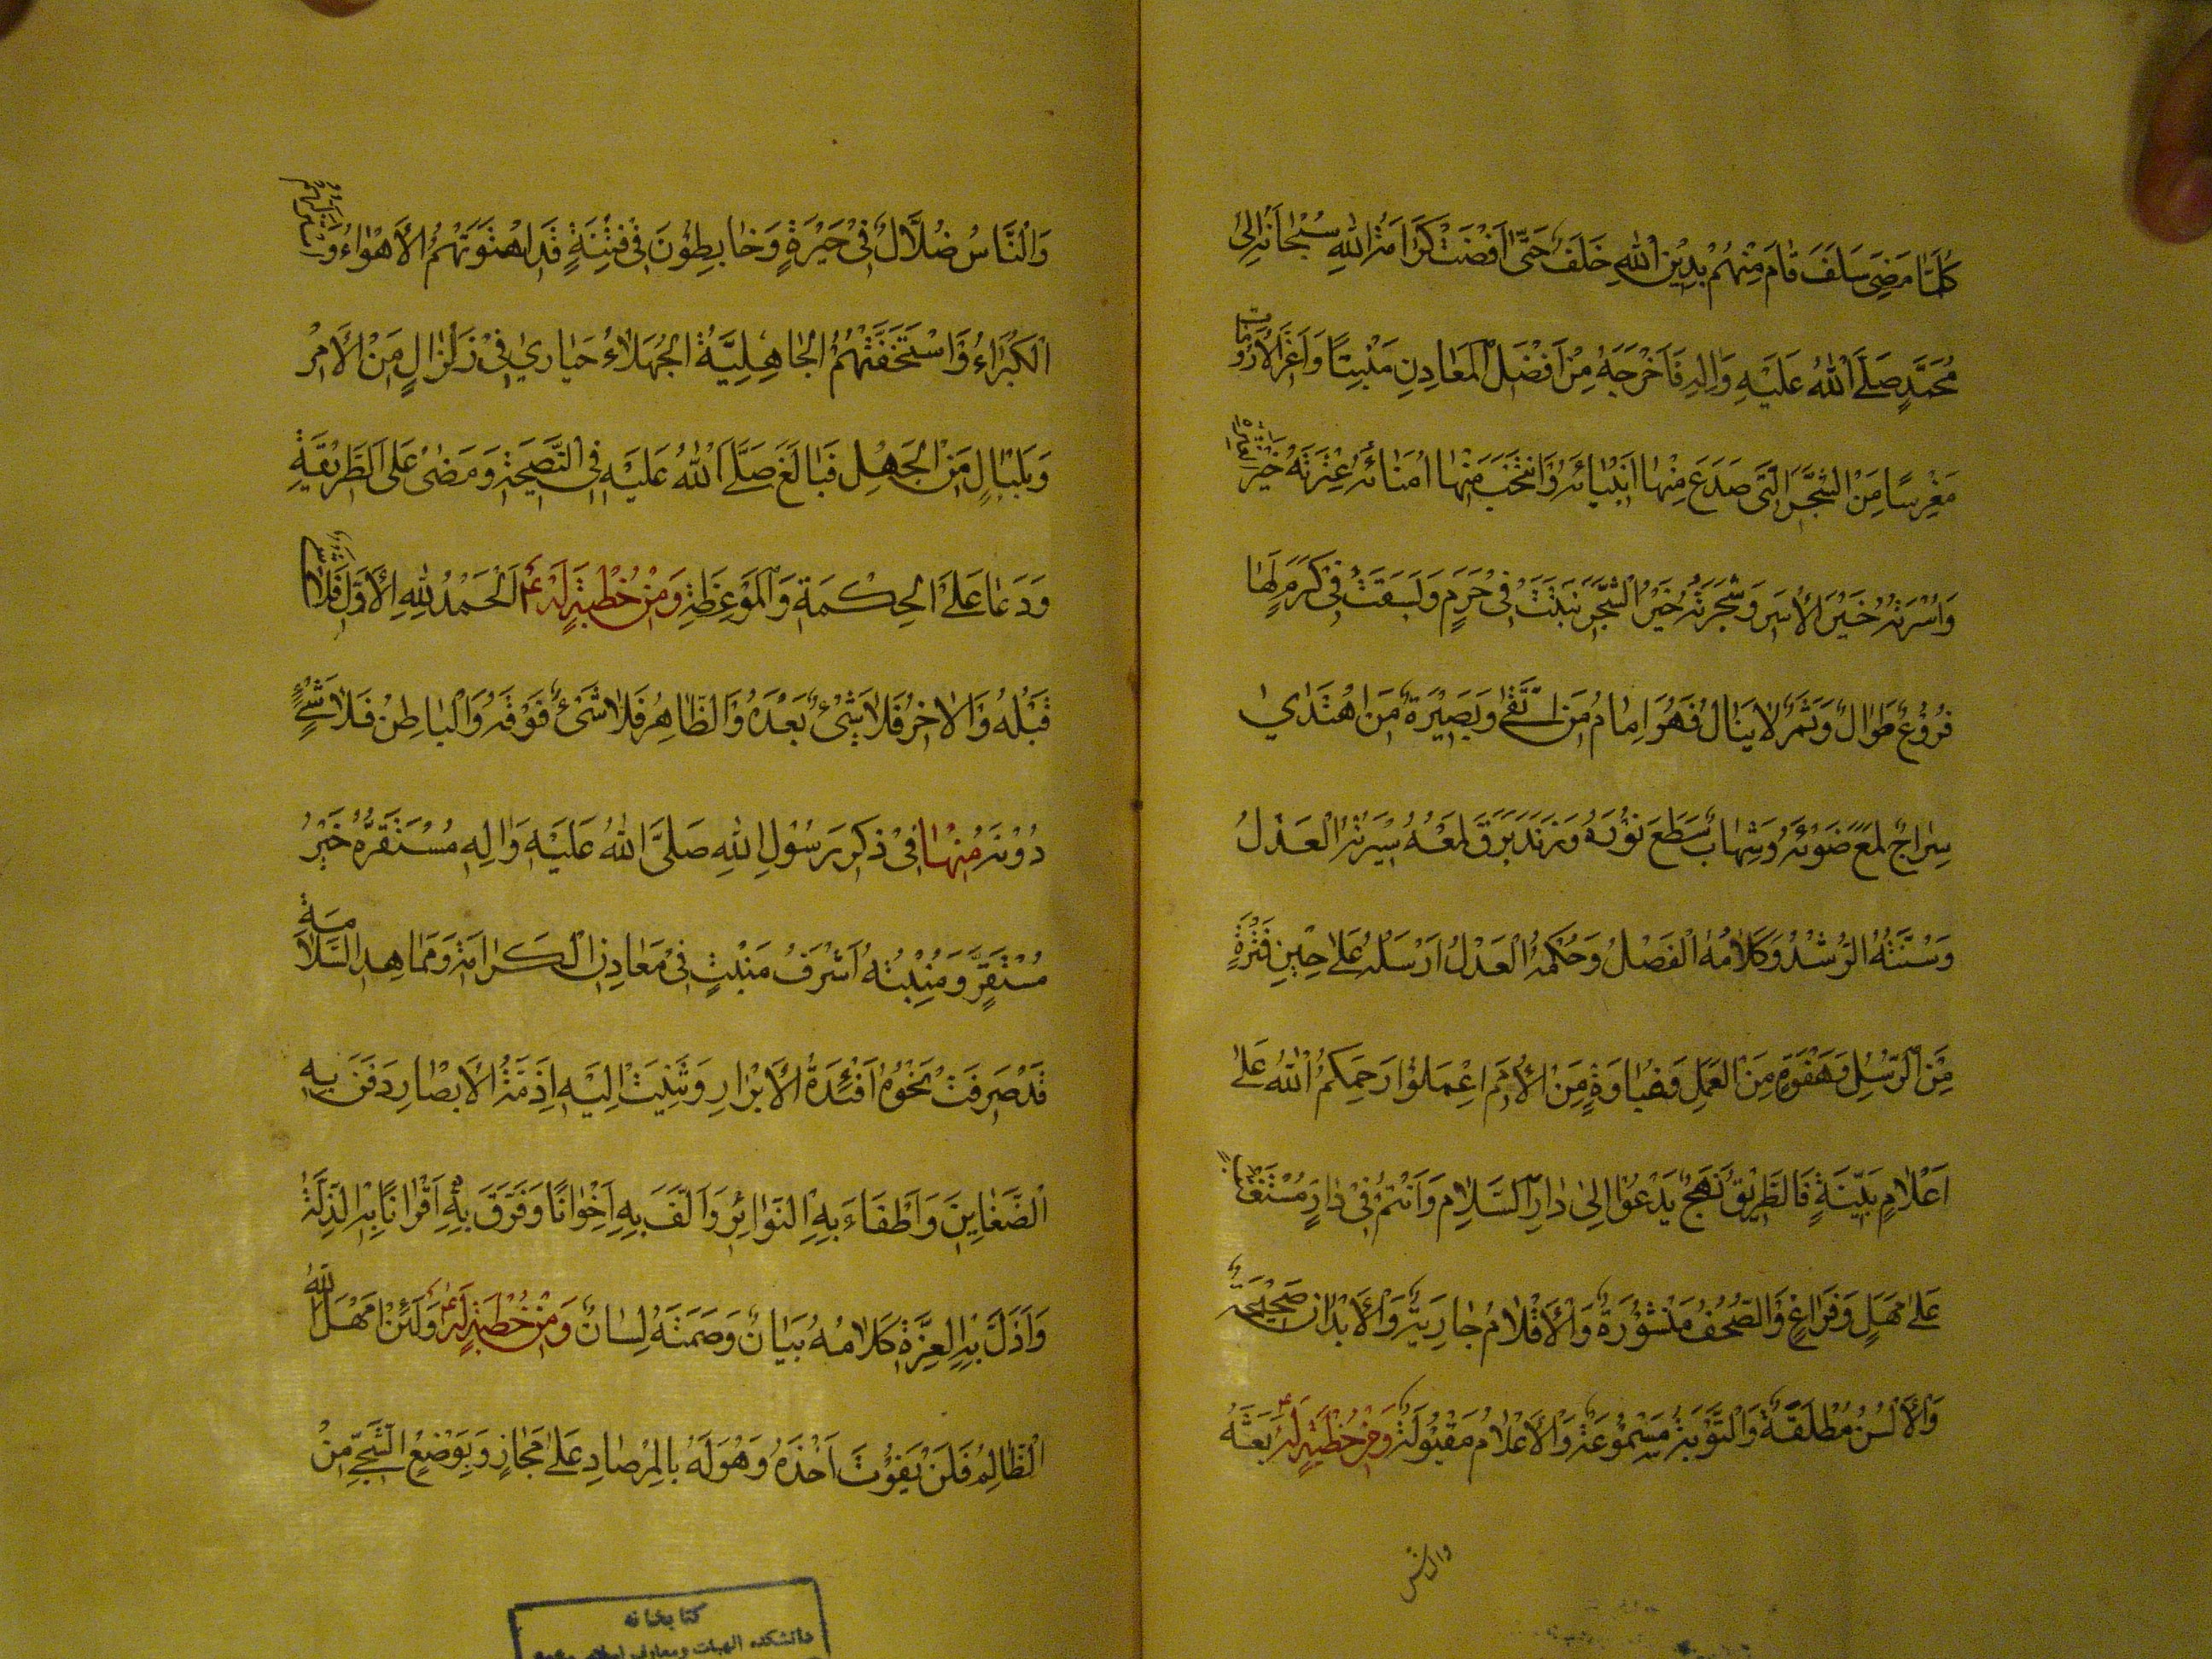 كُلَّمَا مَضَى سَلَفَ قَامَ مِنْهُمْ بِدِيْنِ اللهِ خَلَفٌ حَتّٰى اَفْضَتْ كَرَامَةُ اللهِ سُبْحَانَهُ اِلىٰ
مُحَمَّدٍ صَلَّى اللهُ عَلَيْهِ وَاٰلِهِ فَاَخْرَجَهُ مِنْ اَفْضَلِ الْمَعَادِنِ مَنْبِتًا وَاَعَزِّ الْاَرُوْمَاتِ
مَغْرِسًا مِنَ الشَّجَرَ الَّتِى صَدَعَ مِنْهَا اَنْبِيَائَهُ وَانْتَخَبَ مِنْهَا اُمَنَائَهُ عِتْرَتُهُ خَيْرُ
وَاُسْرَتُهُ خَيْرُ الْاُسَرِ وَشَجَرَتُهُ خَيْرُ الشَّجَرِ نَبَتَتْ فِى حَرَمٍ وَبَسَقَتْ فِى كَرَمٍ لَهَا
فُرُوْعٌ طِوَالٌ وَثَمَرٌ لَا يَنَالُ فَهُوَ اِمَامُ مَنِ اتَّقٰى وَبَصِيْرَةُ مَنِ اهْتَدٰىْ
سِرَاجٌ لَمَعَ ضَوْئُهُ وَشِهَابٌ سَطَعَ نُوْرُهُ وَزَنَدٌ بَرَقَ لَمْعُهُ سِيْرَتُهُ الْعَدْلُ
وَسُنَّتُهُ الرُّشْدُ وَكَلَامُهُ الْفَصْلُ وَحُكْمُهُ الْعَدْلُ اَرْسَلَهُ عَلىٰ حِيْنِ فَتْرَةٍ
مِنَ الرُّسُلِ وَهَفْوَةٍ مِنَ الْعَمَلِ وَغَبَاوَةٍ مِنَ الْاُمَمِ اِعْمَلُوْا رَحِمَكُمُ اللهُ عَلىٰ
اَعْلَامٍ بَيِّنَةٍ فَالطَّرِيْقُ نَهْجٌ يَدْعُوْا اِلىٰ دَارِ السَّلَامِ وَاَنْتُمْ فِىْ دَارِ مُسْتَعْتَبٍ
عَلىٰ مَهَلٍ وَفَرَاغٍ وَالصُّحُفُ مَنْشُوْرَةٌ وَالْاَقْلَامُ جَارِيَةٌ وَالْاَبْدَانُ صَحِيْحَةٌ
وَالْاَلْسُنُ مُطْلَقَةٌ وَالتَّوْبَةُ مَسْمُوْعَةٌ وَالْاَعْلَامُ مَقْبُوْلَةٌ وَمِنْ خُطْبَةٍ لَهُ ع بَعَثَهُ
والناس
وَالنَّاسُ ضُلَّالٌ فِىْ حَيْرَةٍ وَخَابِطُوْنَ فِىْ فِتْنَةٍ قَدِ اهْتَوَتْهُمُ الْاَهْوَاءُ وَاسْتَزَلَّتْهُمُ
الْكُبَرَاءُ وَاسْتَخَفَّتْهُمُ الْجَاهِلِيَّةُ الْجُهَلَاءُ حَيَارٰى فِىْ زَلْزَالٍ مِنَ الْاَمْرِ
وَبَلْبَالٍ مِنَ الْجَهْلِ فَبَالَغَ صَلَّى اللهُ عَلَيْهِ فِى النَّصِيْحَةِ وَمَضٰى عَلَى الطَّرِيْقَةِ
وَدَعَا عَلَى الْحِكْمَةِ وَالْمَوْعِظَةِ وَمِنْ خُطْبَةٍ لَهُ ع اَلْحَمْدُ لِلّٰهِ الْاَوَّلِ فَلَا شَىْءَ
قَبْلَهُ وَالْاٰخِرُ فَلَا شَىْءَ بَعْدَهُ وَالظَّاهِرُ فَلَا شَىْءَ فَوْقَهُ وَالْبَاطِنُ فَلَا شَىْءَ
دُوْنَهُ مِنْهَا فِىْ ذِكْرِ رَسُوْلِ اللهِ صَلَّى اللهُ عَلَيْهِ وَاٰلِهِ مُسْتَقَرُّهُ خَيْرُ
مُسْتَقَرٍّ وَمَنْبِتُهُ اَشْرَفُ مَنْبِتٍ فِىْ مَعَادِنِ الْكَرَامَةِ وَمَمَاهِدِ السَّلَامَةِ
قَدْ صُرِفَتْ نَحْوَهُ اَفْئِدَةُ الْاَبْرَارِ وَثُنِيَتْ اِلَيْهِ اَزِمَّةُ الْاَبْصَارِ دَفَنَ بِهِ
الضَّغَايِنَ وَاَطْفَاءَ بِهِ النَّوَائِرَ وَاَلَّفَ بِهِ اِخْوَانًا وَفَرَّقَ بِهِ اَقْرَانًا بِهِ الذِّلَّةَ
وَاَذَلَّ بِهِ الْعِزَّةَ كَلَامُهُ بَيَانٌ وَصَمْتُهُ لِسَانٌ وَمِنْ خُطْبَةٍ لَهُ ع وَلَئِنْ اَمْهَلَ اللهُ
الظَّالِمَ فَلَنْ يَفُوْتَ اَخْذُهُ وَهُوَ لَهُ بِالْمِرْصَادِ عَلىٰ مَجَازٍ وَبِوَضْعِ الشَّجٰى مِنْ
كتابخانه
دانشكده الهيات ومعارف اسلامى